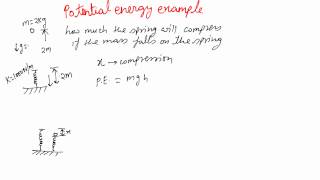 Potential energy enample
m=2kg
how much the spring will compres
if the mass falls on the spring
↓g
2m
x → compression
P.E = mgh
x